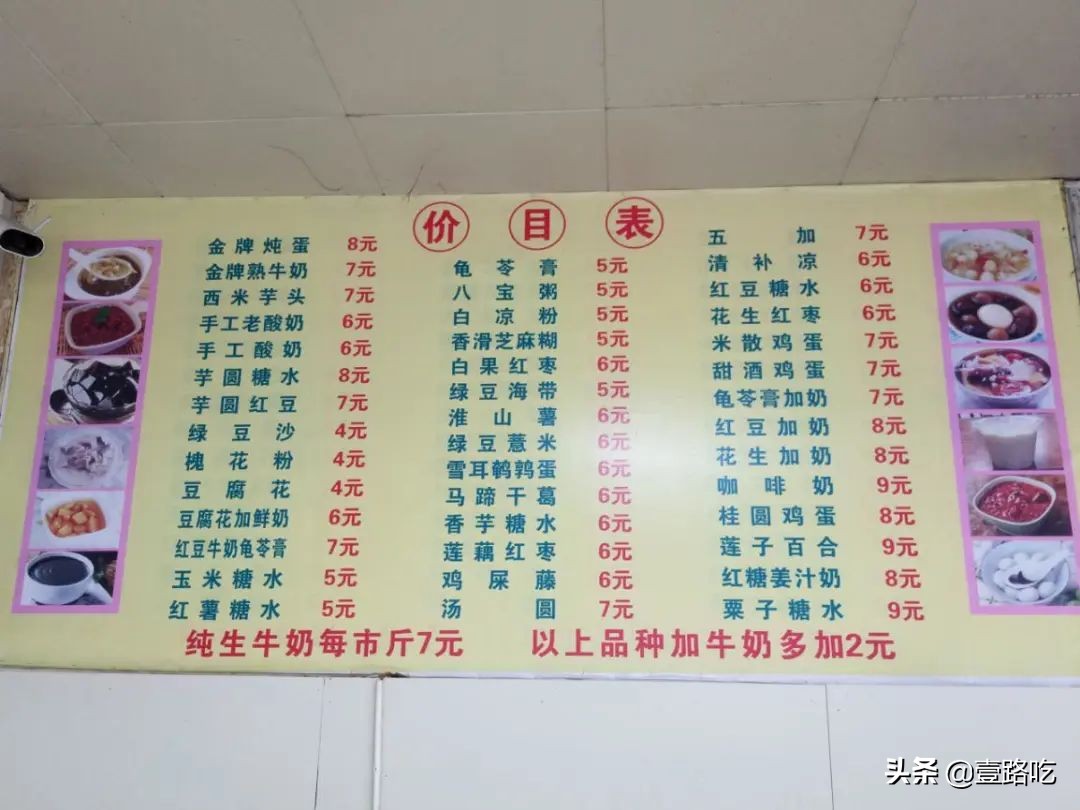 价目表
金牌炖蛋 8元
金牌熟牛奶 7元
西米芋头 7元
手工老酸奶 6元
手工酸奶 6元
芋圆糖水 8元
芋圆红豆 7元
绿豆沙 4元
槐花粉 4元
豆腐花 4元
豆腐花加鲜奶 6元
红豆牛奶龟苓膏 7元
玉米糖水 5元
红薯糖水 5元
龟苓膏 5元
八宝粥 5元
白凉粉 5元
香滑芝麻糊 5元
白果红枣 6元
绿豆海带 5元
淮山薯 6元
绿豆薏米 6元
雪耳鹌鹑蛋 6元
马蹄干葛 6元
香芋糖水 6元
莲藕红枣 6元
鸡屎藤 6元
汤圆 7元
五加 7元
清补凉 6元
红豆糖水 6元
花生红枣 6元
米散鸡蛋 7元
甜酒鸡蛋 7元
龟苓膏加奶 7元
红豆加奶 8元
花生加奶 8元
咖啡奶 9元
桂圆鸡蛋 8元
莲子百合 9元
红糖姜汁奶 8元
粟子糖水 9元
纯生牛奶每市斤7元 以上品种加牛奶多加2元
头条 @壹路吃